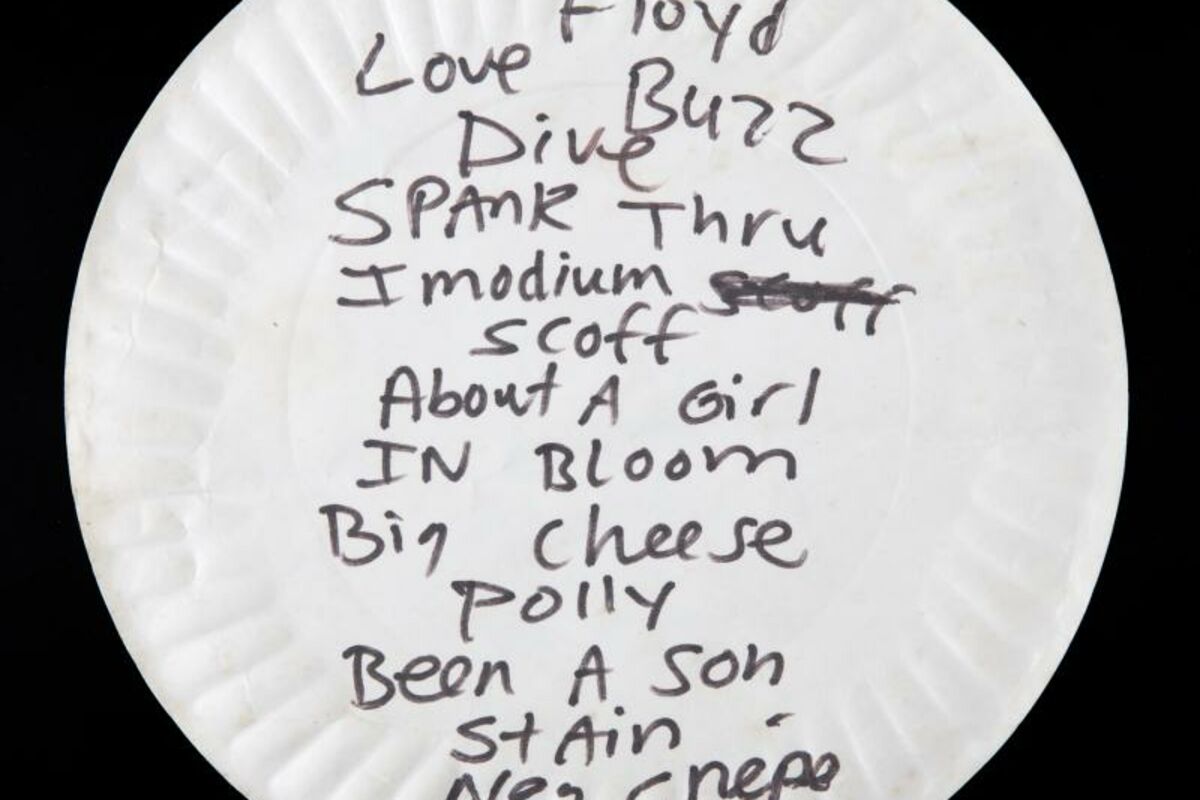 Floyd
Love Buzz
Dive
SPAnK Thru
Imodium scoff
scoff
About A Girl
IN Bloom
Big cheese
polly
Been A son
StAin
Neg creep